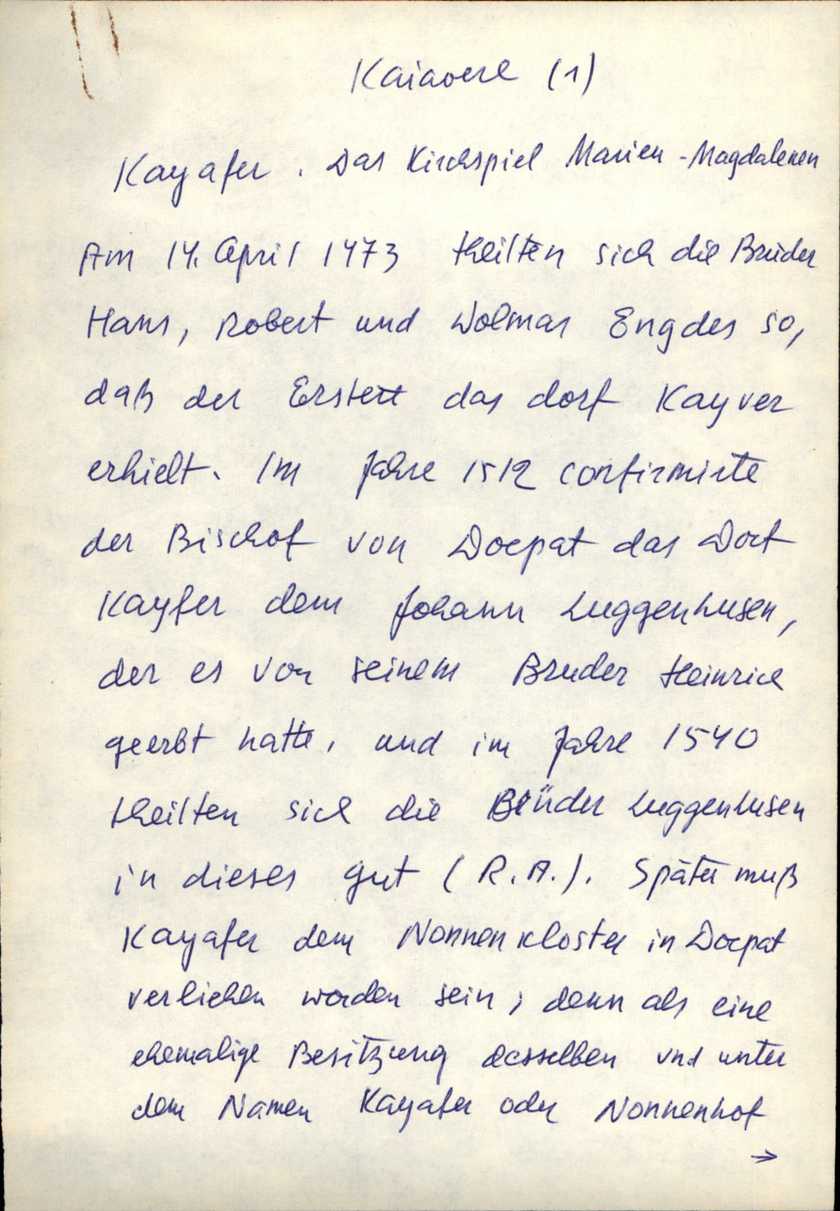 Kaiavere (1)
Kayafer. Das Kirchspiel Marien-Magdalenen
Am 14. April 1473 theilten sich die Brüder
Hans, Robert und Wolmar Engdes so,
daß der Erstere das dorf Kayver
erhielt. Im Jahre 1512 confirmirte
der Bischof von Dorpat das Dorf
Kayfer dem Johann Luggenhusen,
der es von seinem Bruder Heinrich
geerbt hatte, und im Jahre 1540
theilten sich die Brüder Luggenhusen
in dieses gut (R.A.). Später muß
Kayafer dem Nonnenkloster in Dorpat
verliehen worden sein; denn als eine
ehemalige Besitzung desselben und unter
dem Namen Kayafer oder Nonnenhof
→